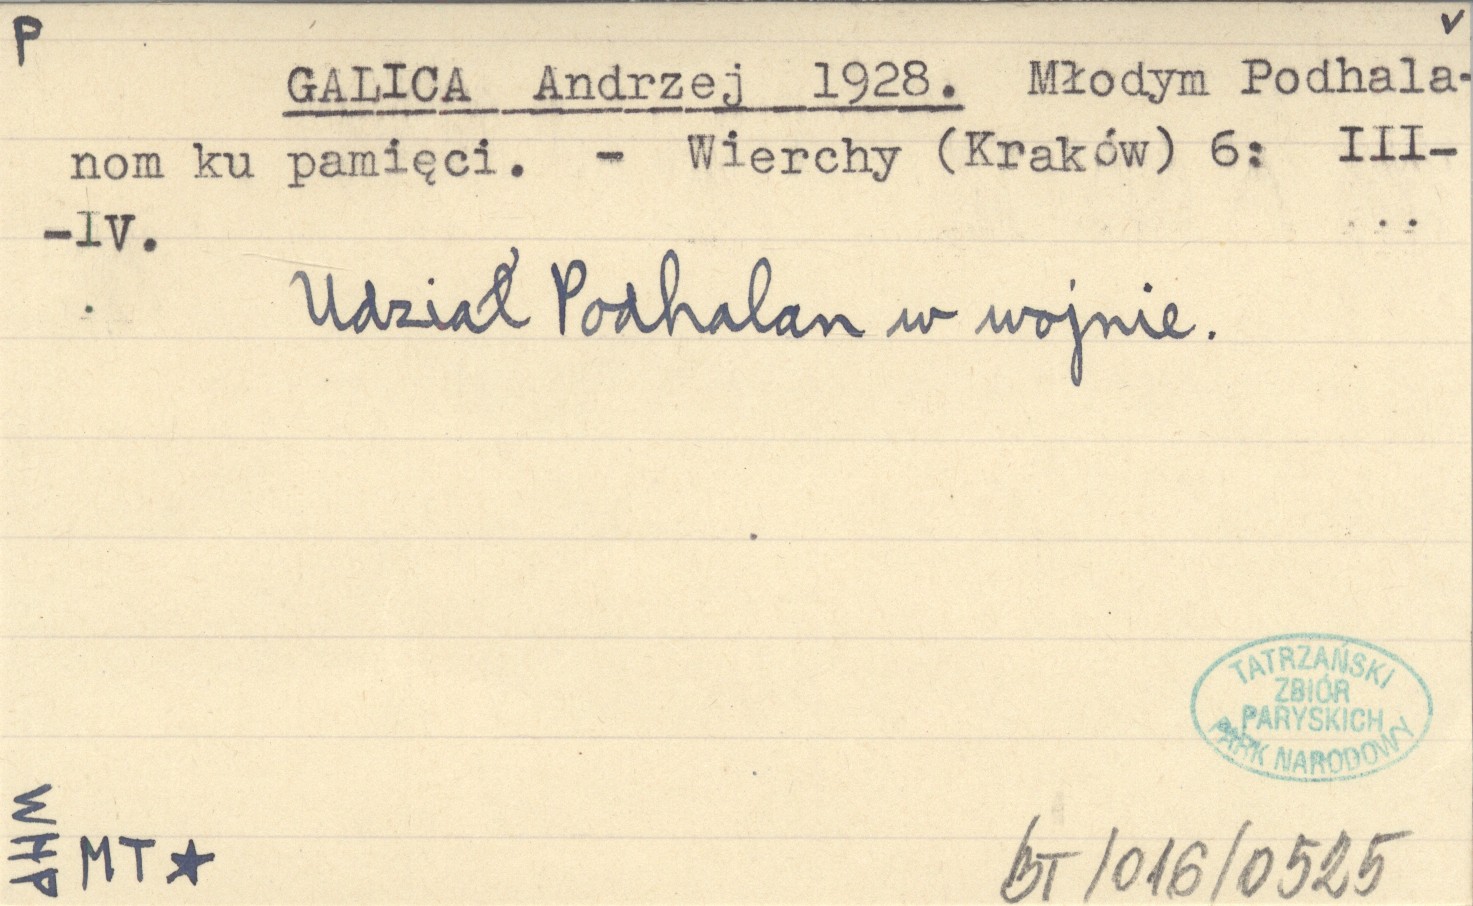 P
v
GALICA Andrzej 1928. Młodym Podhala-
nom ku pamięci. - Wierchy (Kraków) 6: III-
-IV.
Udział Podhalan w wojnie.
TATRZAŃSKI
ZBIÓR
PARYSKICH
PARK NARODOWY
WHP
MT★
BT/016/0525